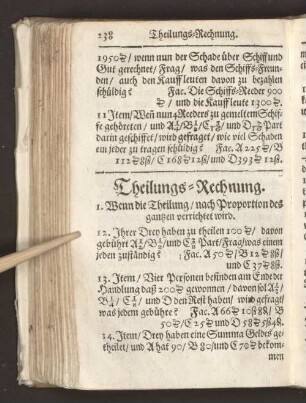 238 Theilungs-Rechnung.
1950 ₰/ wenn nun der Schade über Schiff und
Gut gerechnet/ Frag/ was den Schiffs-Freun-
den/ auch den Kauffleuten davon zu bezahlen
schüldig? Fac. Die Schiffs-Reeder 900
₰/ und die Kauffleute 1300 ₰.
11 Item/ Weñ nun 4 Reeders zu gemeltem Schif-
fe gehöreten/ und
darin geschiffet/ wird gefraget/ wie viel Schaden
ein jeder zu tragen schüldig? Fac. A 225 ₰/ B
112 ₰ 8ß/ C 168 ₰ 12ß/ und D 393 ₰ 12ß.
Theilungs-Rechnung.
1. Wenn die Theilung/ nach Proportion des
gantzen verrichtet wird.
12. Ihrer Drey haben zu theilen 100 ₰/ davon
gebührt Part/ Frag/ was einem
jeden zuständig? Fac. A 50 ₰/ B 12 ₰ 8ß/
und C 37 ₰ 8ß.
13. Item/ Vier Personen befinden am Ende der
Handlung daß 200 ₰ gewonnen/ davon sol
und D den Rest haben/ wird gefragt/
was jedem gebühre? Fac. A 66 ₰ 10ß 8₰/ B
50 ₰/ C 25 ₰ und D 58 ₰ 5ß 4₰.
14. Item/ Drey haben eine Summa Geldes ge-
theilet/ und A hat 90/ B 80/ und C 70 ₰ bekom-
men